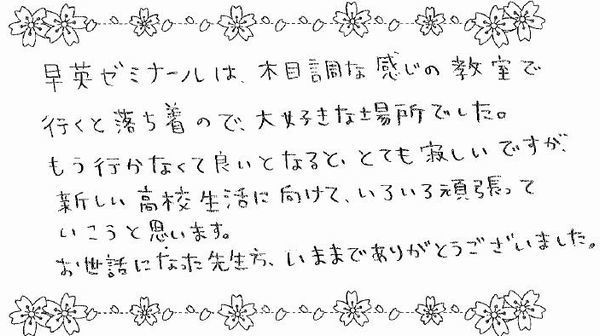 早英ゼミナールは、木目調な感じの教室で
行くと落ち着ので、大好きな場所でした。
もう行かなくて良いとなると、とても寂しいですが、
新しい高校生活に向けて、いろいろ頑張って
いこうと思います。
お世話になった先生方、いままでありがとうございました。